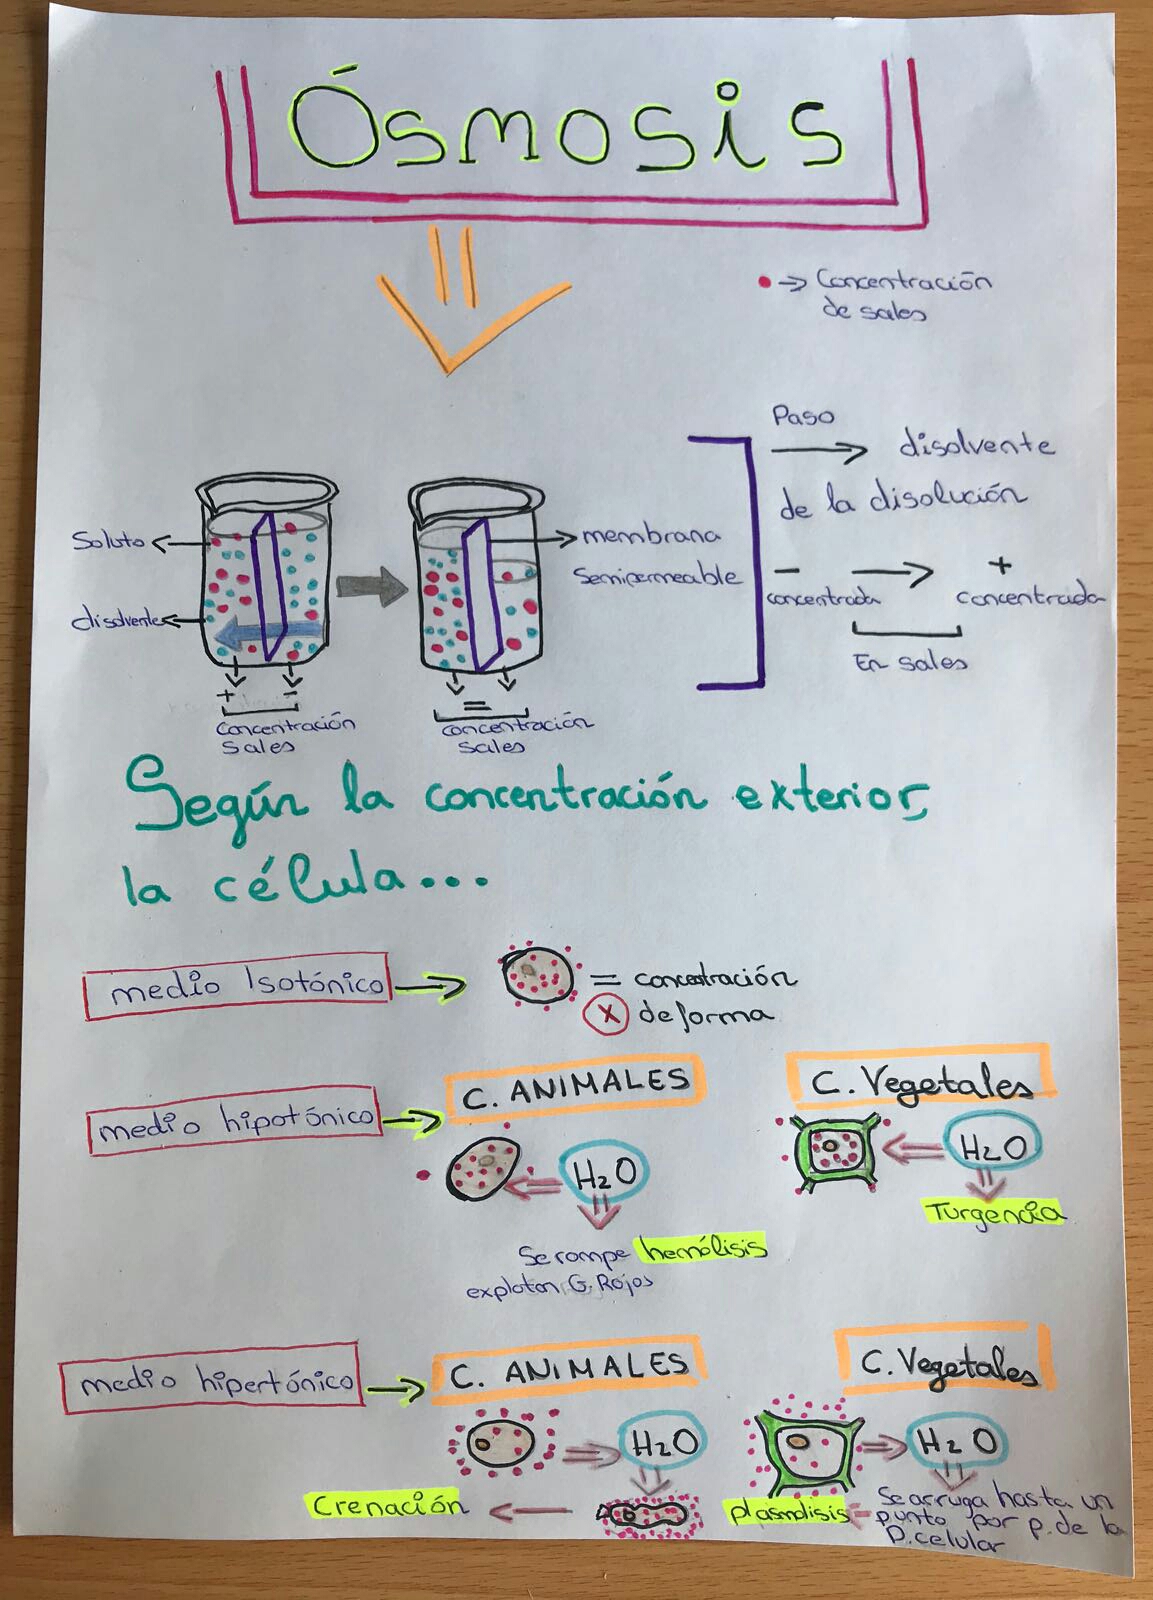 Ósmosis
• → Concentración
de sales
Paso
→ disolvente
de la disolución
- → +
concentrada concentrada
En sales
Soluto
disolvente
membrana
Semipermeable
+ -
Concentración
Sales
=
Concentración
Sales
Según la concentración exterior,
la célula...
medio Isotónico → = concentración
X deforma
medio hipotónico →
C. ANIMALES
H₂O
Se rompe hemólisis
explotan G. Rojos
C. Vegetales
H₂O
Turgencia
medio hipertónico →
C. ANIMALES
H₂O
Crenación
C. Vegetales
H₂O
plasmolisis
Se arruga hasta un
punto por p. de la
P. celular